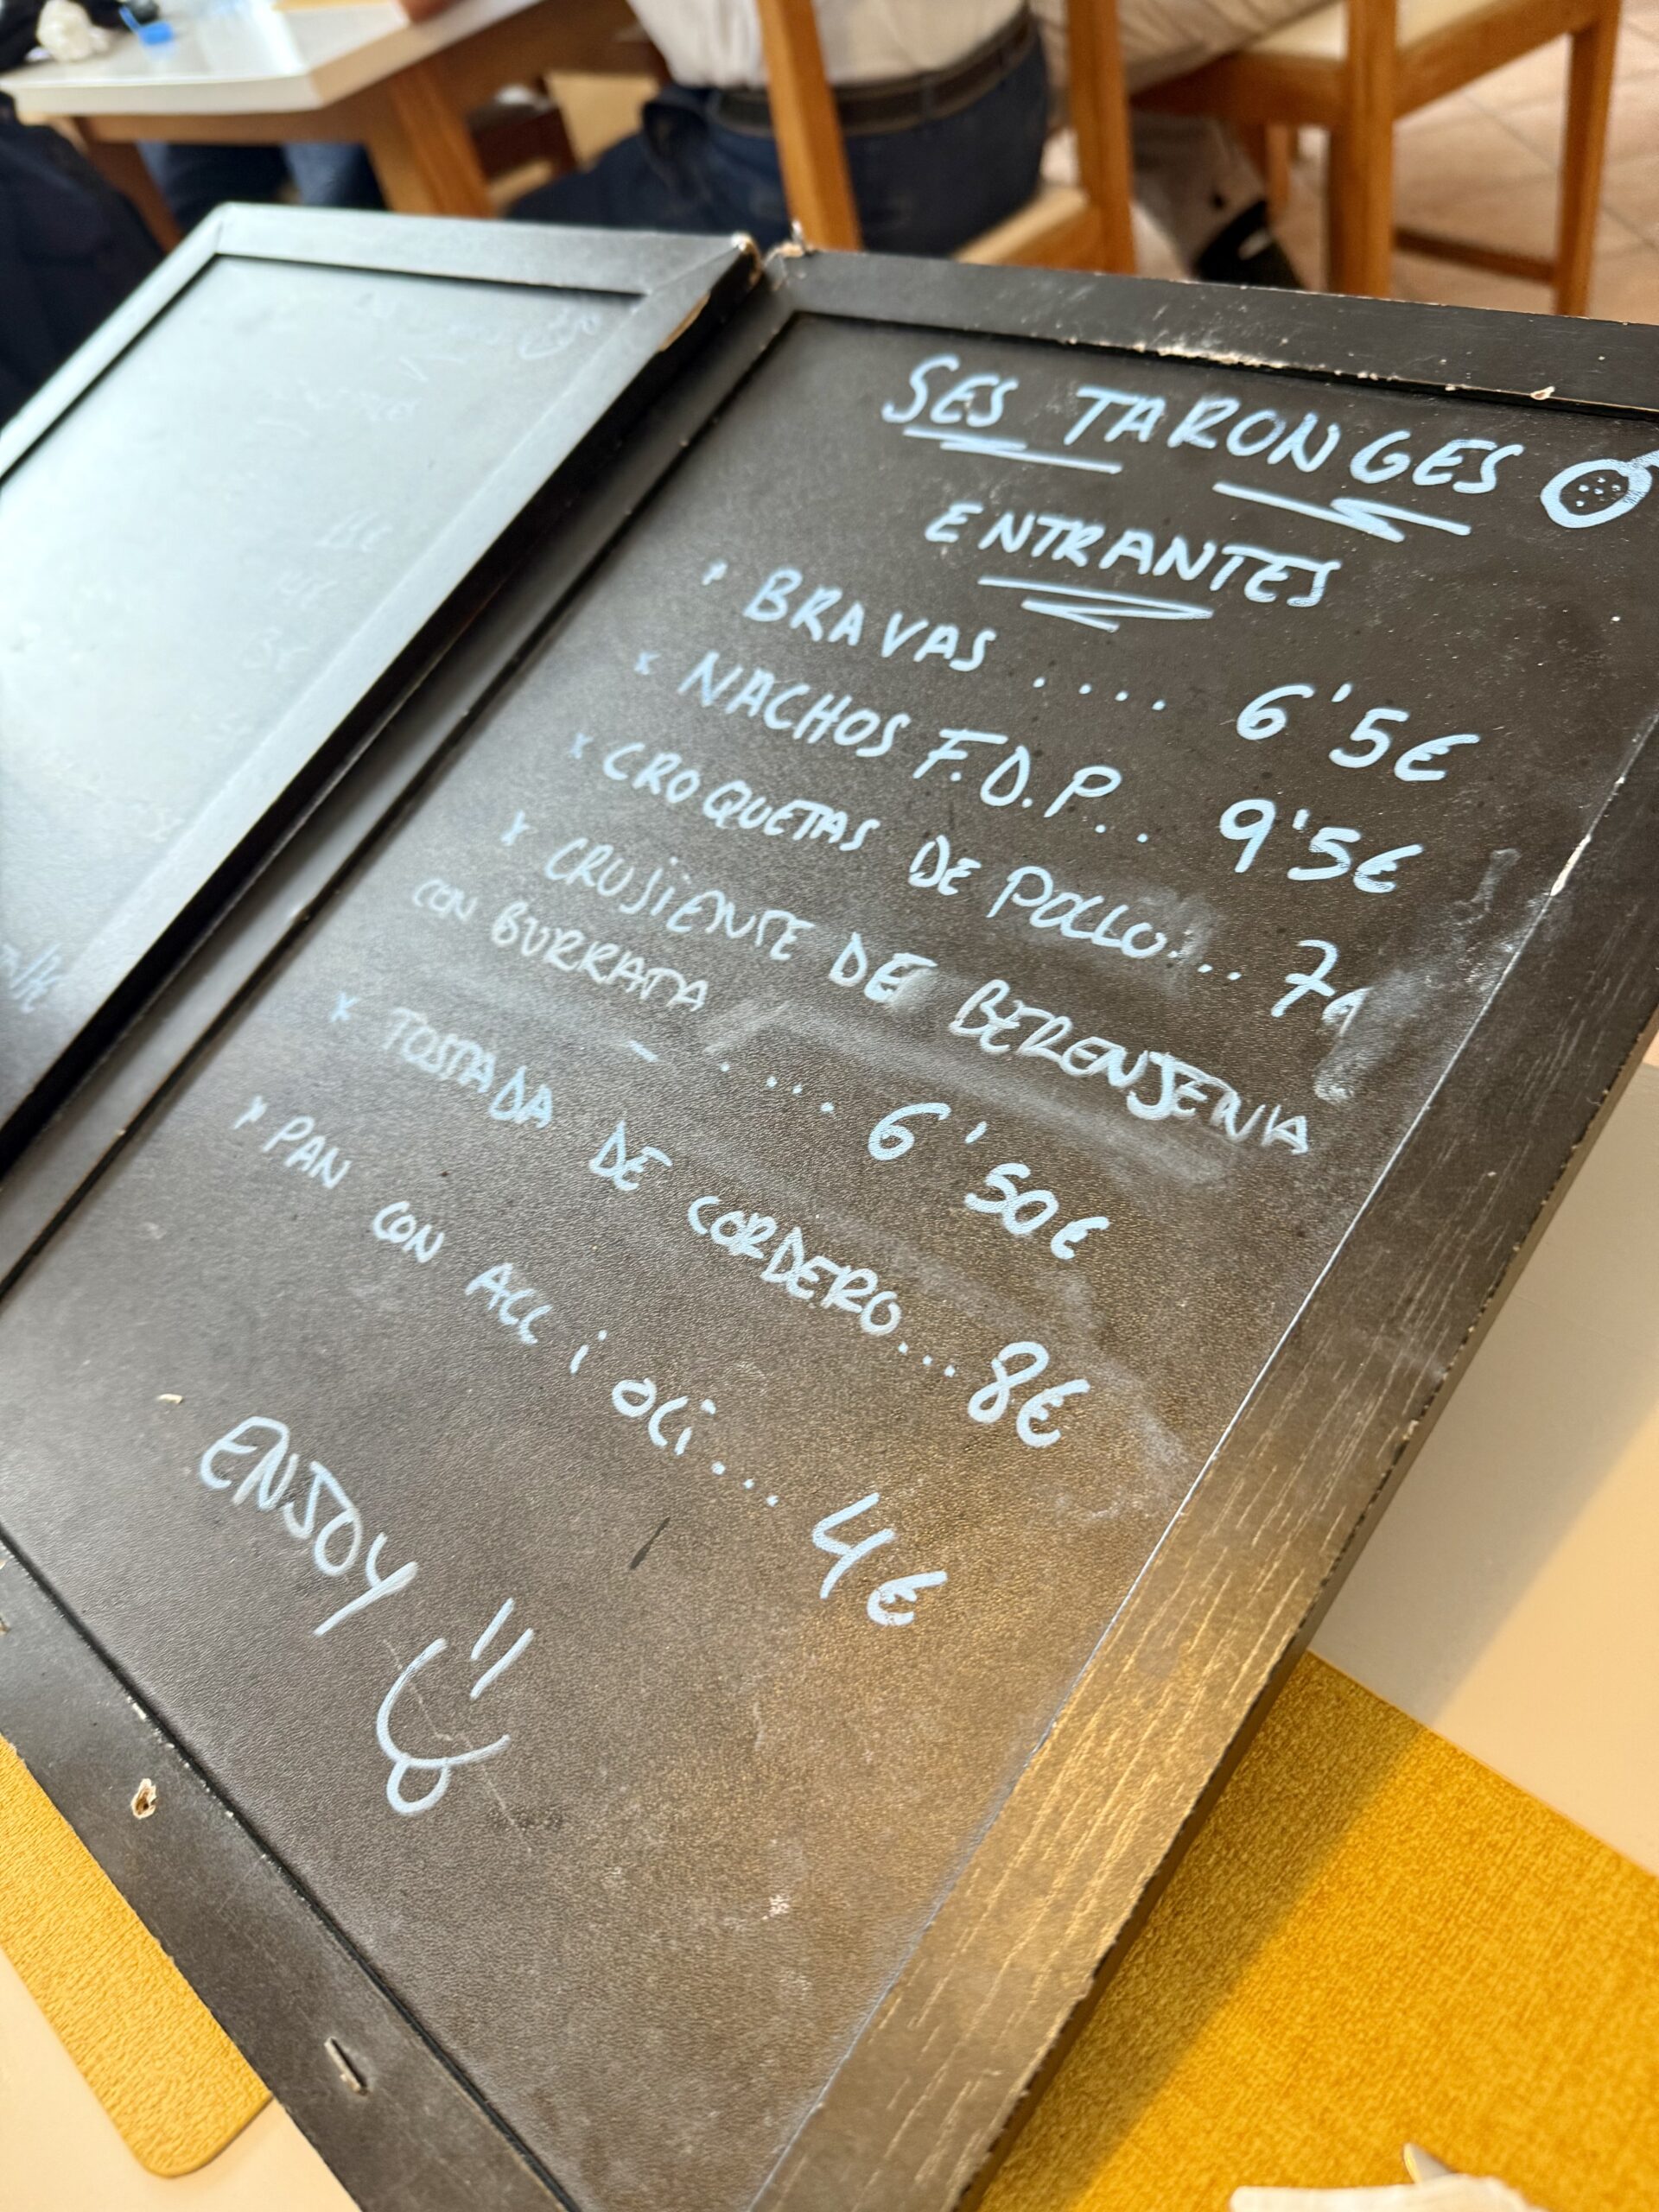 SES TARONGES
ENTRANTES
* BRAVAS .... 6'5€
* NACHOS F.D.P... 9'5€
* CROQUETAS DE POLLO... 7€
* CRUJIENTE DE BERENJENA
CON BURRATA .... 6'50€
* TOSTADA DE CORDERO... 8€
* PAN CON ALL i oli... 4€
ENJOY